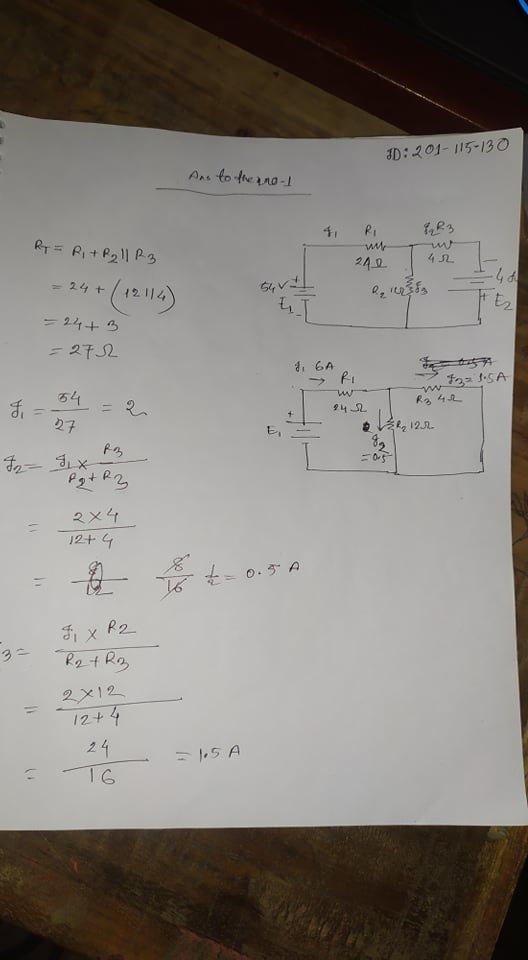 ID: 201-115-130
Ans to the no-1
R_T = R_1 + R_2 || R_3
= 24 + (12 || 4)
= 24 + 3
= 27 Ω
I_1 = 54/27 = 2
I_2 = I_1 × R_3 / R_2 + R_3
= 2 × 4 / 12 + 4
= 8/16 1/2 = 0.5 A
3 = I_1 × R_2 / R_2 + R_3
= 2 × 12 / 12 + 4
= 24 / 16 = 1.5 A
I_1 R_1 I_2 R_3
24 Ω 4 Ω
54 V + E_1 R_2 12 Ω I_3 - + E_2
I_1 6A I_3 = 1.5 A
R_1 R_3 4 Ω
24 Ω
E_1 + R_2 12 Ω
I_2
= 0.5